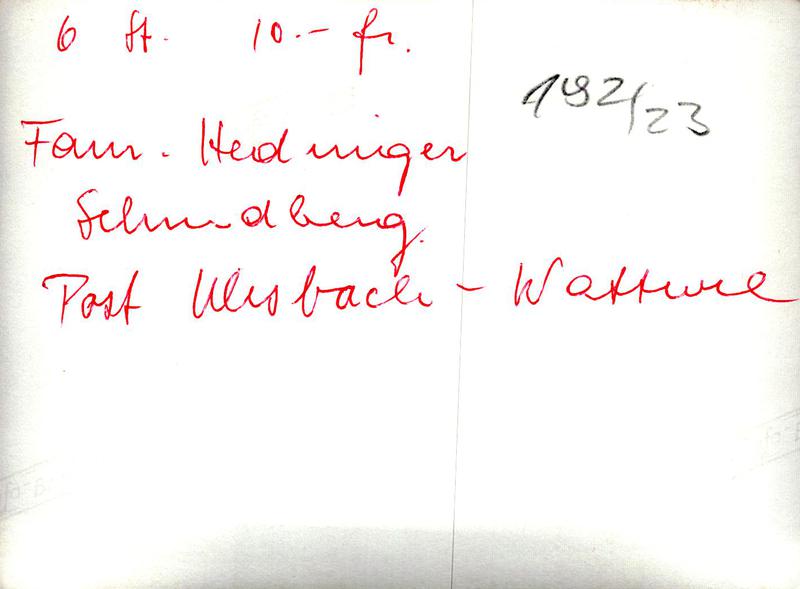 6 St. 10.- fr.
192/23
Fam. Hedinger
Schmidberg
Post Ulisbach - Wattwil